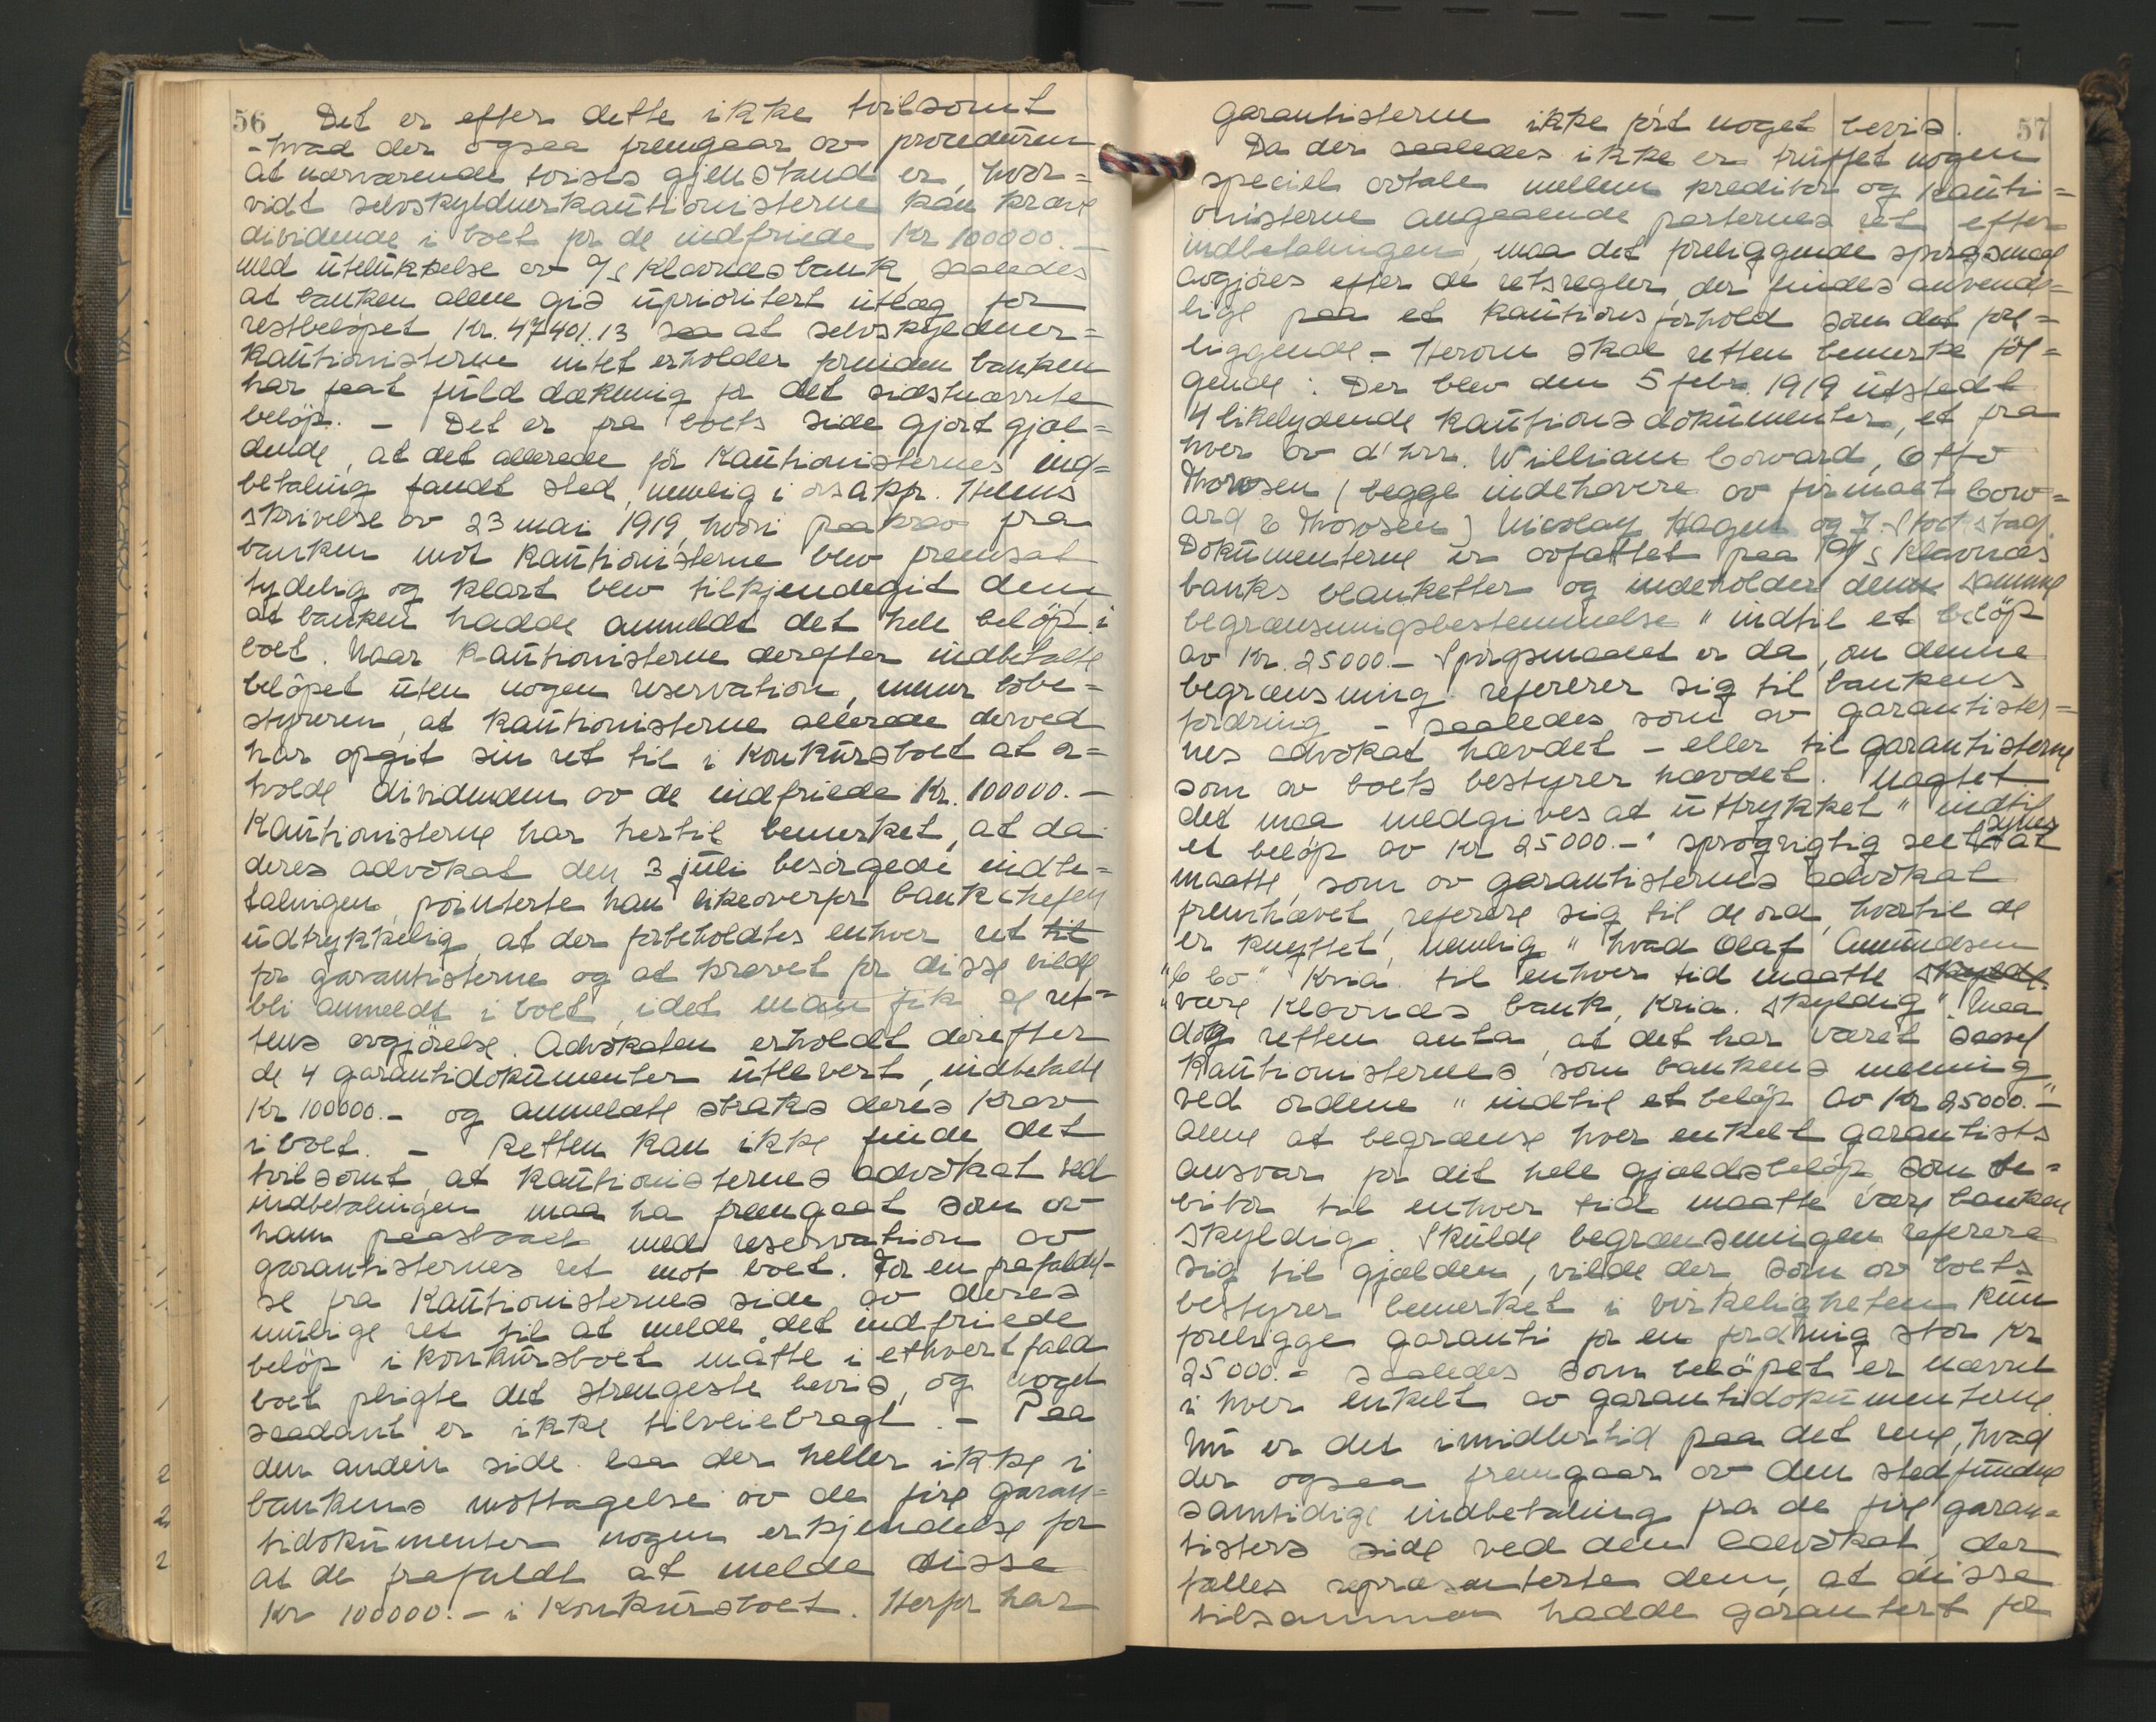 56
Det er efter dette ikke tvilsomt
- hvad der ogsaa fremgaar av proceduren
at nærværende tvists gjenstand er, hvor=
vidt selvskyldnerkautionisterne kan kræve
dividende i boet for de indfriede Kr 100000.-
med utelukkelse av A/S Klavnæsbank saaledes
at banken alene gis uprioritert utlæg for
restbeløpet Kr. 47401.13 saa at selvskyldner=
kautionisterne intet erholder forinden banken
har faat fuld dækning for det sidstnævnte
beløp. - Det er fra boets side gjort gjæl=
dende, at det allerede før Kautionisternes ind=
betaling fandt sted, nemlig i orsakfr. Helms
skrivelse av 23 mai 1919, hvori paakrav fra
banken mot Kautionisterne blev fremsat
tydelig og klart blev tilkjendegit dem,
at banken hadde anmeldt det hele beløp i
boet. Naar Kautionisterne derefter indbetalte
beløpet uten nogen reservation, mener bobe=
styreren, at kautionisterne allerede derved
har opgit sin ret til i Konkursboet at er=
holde dividenden av de indfriede Kr. 100000.-
Kautionisterne har hertil bemerket, at da
deres advokat den 3 juli besørgede indbe=
talingen, pointerte han likeoverfor bankchefen
udtrykkelig, at der forbeholdtes enhver ret til
for garantisterne og at kravet for disse vilde
bli anmeldt i boet, idet man fik se ret=
tens avgjørelse. Advokaten erholdt derefter
de 4 garantidokumenter utlevert, indbetalte
Kr 100000.- og anmeldte straks deres krav
i boet. - Retten kan ikke finde det
tvilsomt, at Kautionisternes advokat ved
indbetalingen maa ha fremgaat som av
ham paastaaet med reservation av
garantisternes ret mot boet. For en frafaldel=
se fra Kautionisternes side av deres
mulige ret til at melde det indfriede
beløp i konkursboet måtte i ethvert fald
boet pligte det strengeste bevis, og noget
saadant er ikke tilveiebragt. - Paa
den anden side laa der heller ikke i
bankens mottagelse av de fire garan=
tidokumenter nogen erkjendelse for
at de frafaldt at melde disse
Kr 100000.- i Konkursboet. Herfor har
57
garantisterne ikke ført noget bevis.
Da der saaledes ikke er truffet nogen
speciel avtale mellem kreditor og kauti=
onisterne angaaende parternes ret efter
indbetalingen, maa det foreliggende spørgsmaal
avgjøres efter de retsregler, der findes anvende=
lige paa et Kautionsforhold som det fore=
liggende. - Herom skal retten bemerke føl=
gende: Der blev den 5 febr. 1919 utstedt
4 likelydende Kautionsdokumenter, et fra
hver av d'hrr. William Coward, Otto
Thoresen (begge indehavere av firmaet Cow=
ard & Thoresen) Nicolay Hagen og J. Stort stad.
Dokumenterne er avfattet paa A/S Klavnæs
banks blanketter og indeholder den samme
begrænsningsbestemmelse "indtil et beløp
av Kr. 25000.- Spørgsmaalet er da, om denne
begrænsning referer sig til bankens
fordring - saaledes som av garantister=
nes advokat hævdet - eller til garantisterne
som av boets bestyrer hævdet. Uagtet
det maa medgives at uttrykket "indtil
et beløp av Kr 25000.-" sprogrigtig seet synes at
maatte, som av garantisternes advokat
fremhævet, referere sig til de ord, hvortil de
er knyttet, nemlig "hvad Olaf Amundsen
"& Co" Kria. til enhver tid maatte skylde
"være Klavnæs bank, Kria. skyldig". Maa
dog retten anta, at det har været saavel
Kautionisternes som bankens mening
ved ordene "indtil et beløp av Kr 25000.-"
alene at begrænse hver enkelt garantists
ansvar for det hele gjældsbeløp, som de=
bitor til enhver tid maatte være banken
skyldig. Skulde begrænsningen referere
sig til gjælden, vilde der som av boets
bestyrer bemerket i virkeligheten kun
foreligge garanti for en fordring stor Kr
25000.- saaledes som beløpet er nævnt
i hver enkelt av garantidokumenterne.
Nu er det imidlertid paa det rene, hvad
der ogsaa fremgaar av den stedfundne
samtidige indbetaling fra de fire garan=
tisters side ved den advokat, der
fælles repræsenterte dem, at disse
tilsammen hadde garantert for